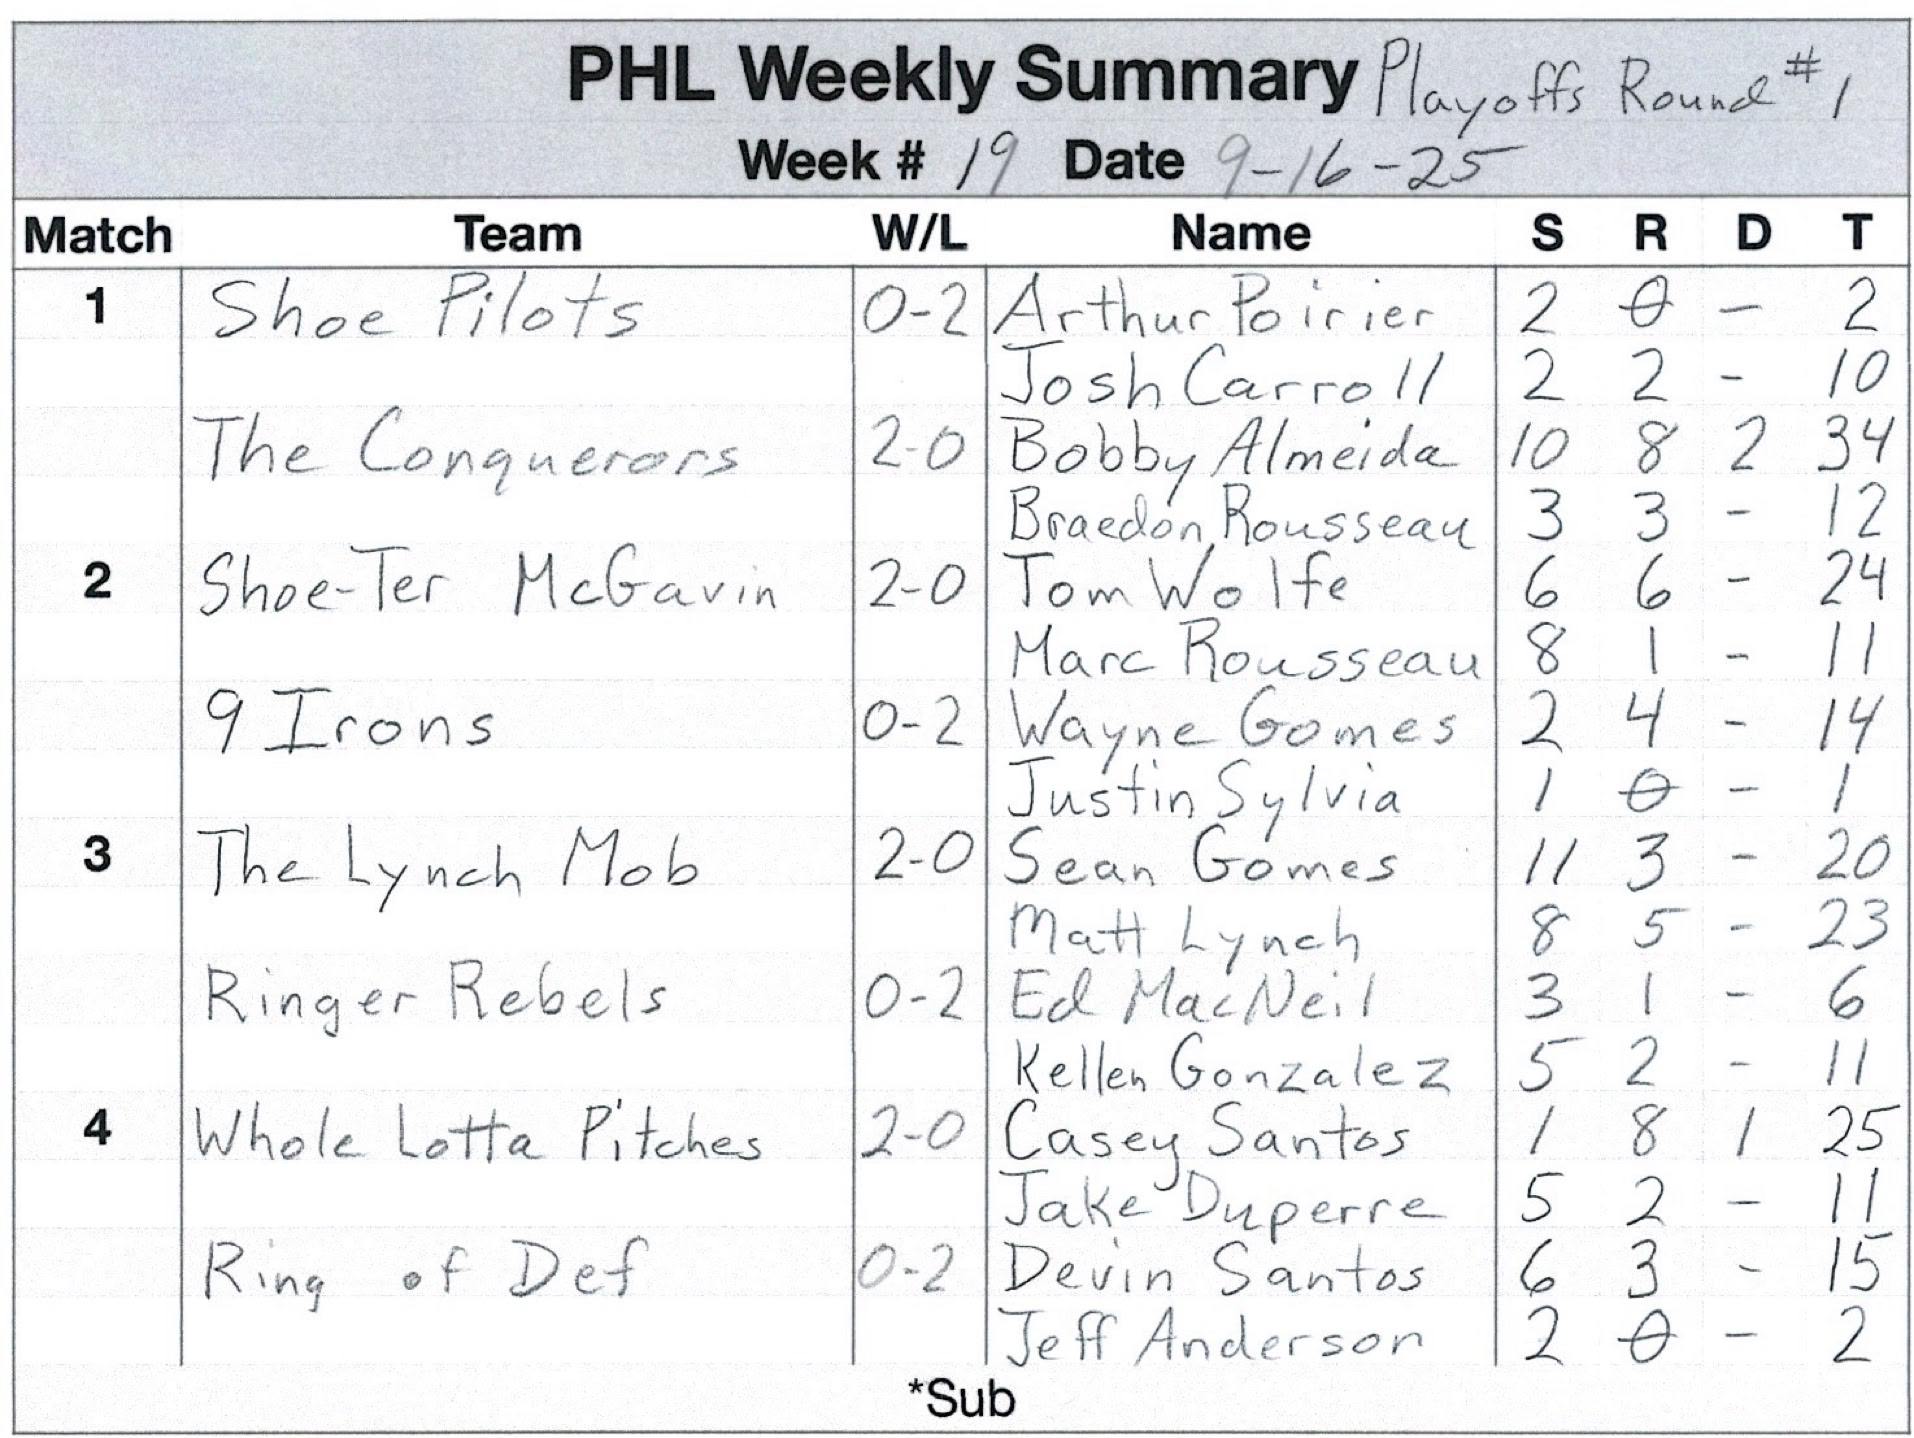 PHL Weekly Summary Playoffs Round #1
Week # 19 Date 9-16-25
Match Team W/L Name S R D T
1 Shoe Pilots 0-2 Arthur Poirier 2 0 - 2
Josh Carroll 2 2 - 10
The Conquerors 2-0 Bobby Almeida 10 8 2 34
Braedon Rousseau 3 3 - 12
2 Shoe-Ter McGavin 2-0 Tom Wolfe 6 6 - 24
Marc Rousseau 8 1 - 11
9 Irons 0-2 Wayne Gomes 2 4 - 14
Justin Sylvia 1 0 - 1
3 The Lynch Mob 2-0 Sean Gomes 11 3 - 20
Matt Lynch 8 5 - 23
Ringer Rebels 0-2 Ed MacNeil 3 1 - 6
Kellen Gonzalez 5 2 - 11
4 Whole Lotta Pitches 2-0 Casey Santos 1 8 1 25
Jake Duperre 5 2 - 11
Ring of Def 0-2 Devin Santos 6 3 - 15
Jeff Anderson 2 0 - 2
*Sub